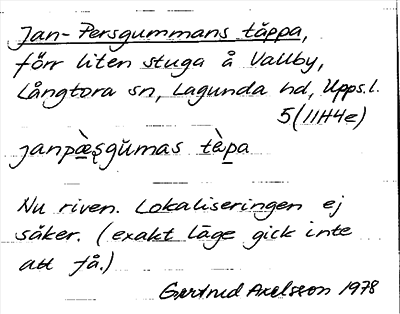 Jan-Persgummans täppa,
förr liten stuga å Vallby,
Långtora sn, Lagunda hd, Upps.l.
5(11H4e)
janpæ̀ʂgŭmas tὲpa
Nu riven. Lokaliseringen ej
säker. (exakt läge gick inte
att få.)
Gertrud Axelsson 1978